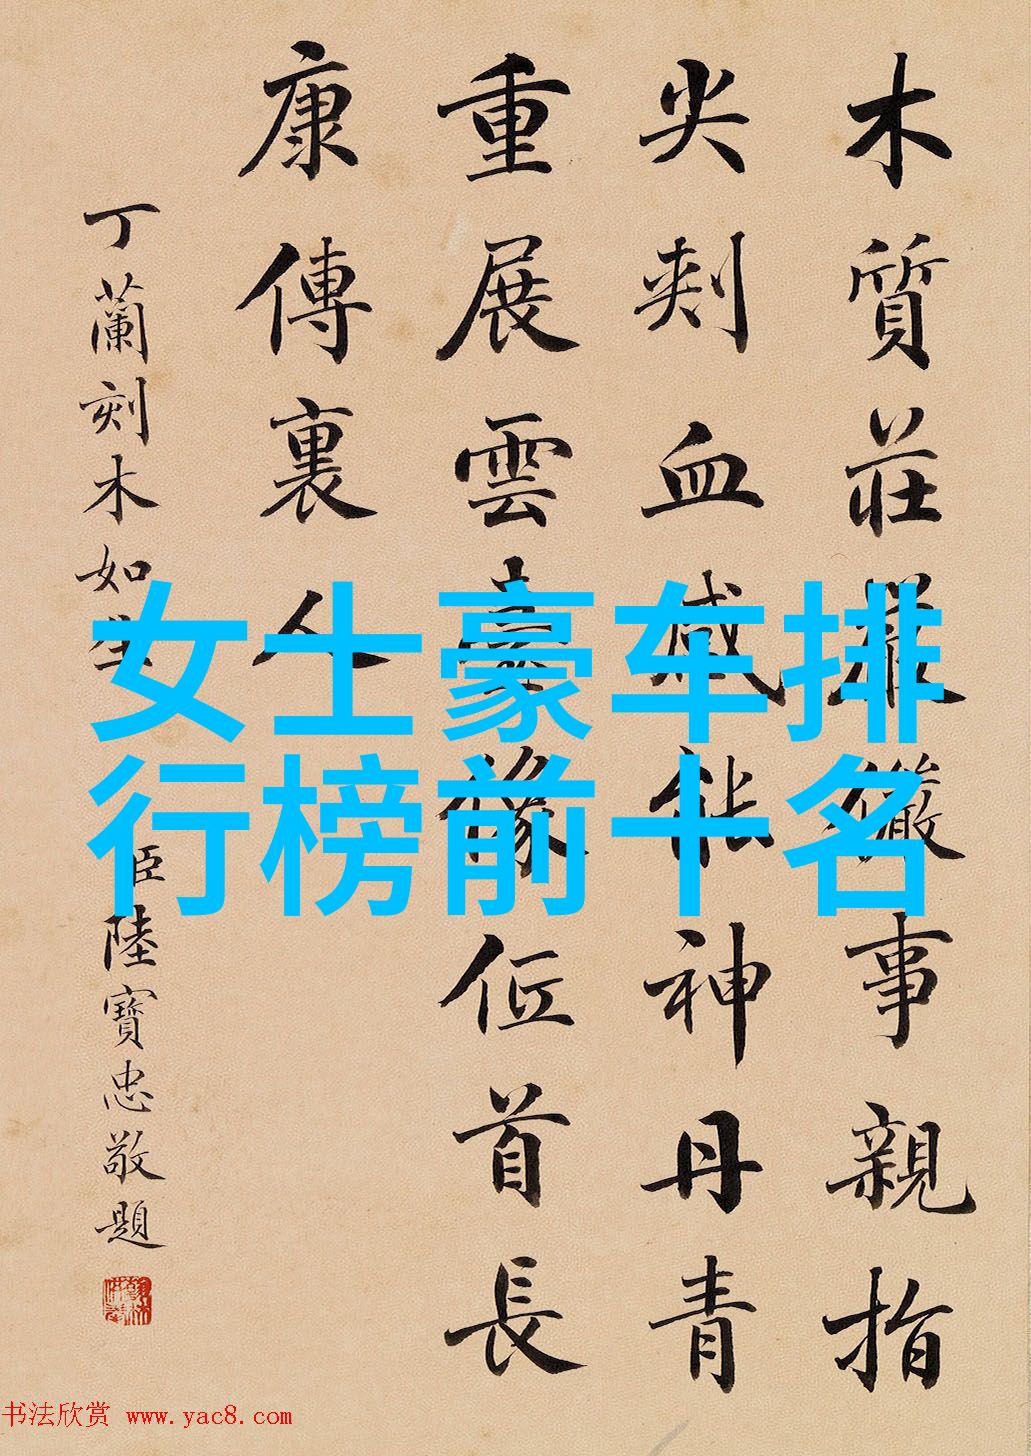 木質莊嚴儼事親指
尖刺血感能神丹青
重展雲臺像位首長
康傳裏人
丁蘭刻木如生
臣陸寶忠敬題
女士豪车排
行榜前十名
书法欣赏 www.yac8.com